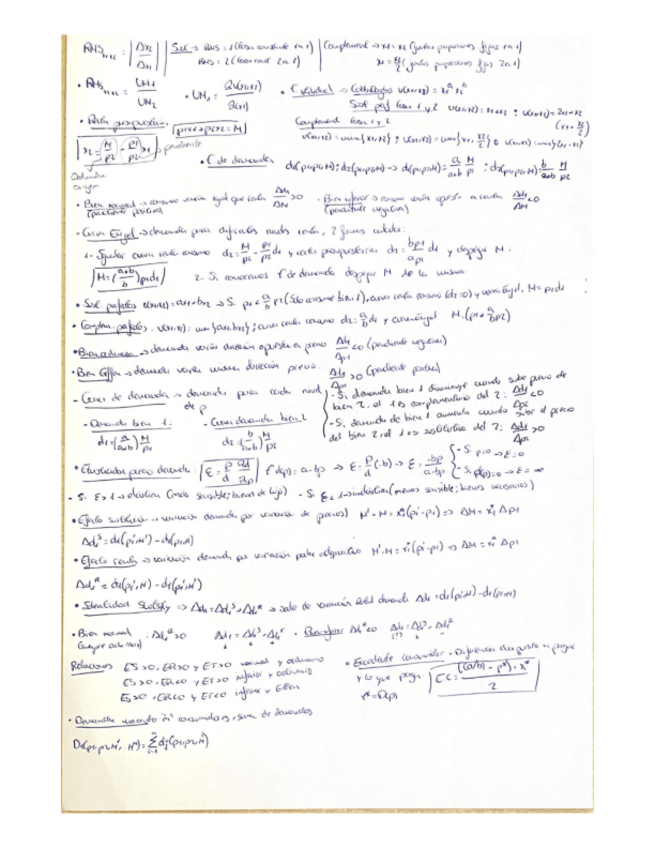 RMS x1,x2 = |Δx2/Δx1| | Sust → RMS = 1 (tasa constante 1 a 1) | Complement → x1 = x2 (juntos proporciones fijas 1 a 1)
RMS = 2 (tasa const 2 a 1) x1 = x2/2 (juntos proporciones fijas 2 a 1)
• RMS x1,x2 = UM1/UM2 • UM1 = • F. utilidad → Cobb Douglas u(x1,x2) = x1^a x2^b
Sust perf tasa 1 y 2 u(x1,x2) = x1+x2 ; u(x1,x2) = 2x1+x2
Complement tasa 1 y 2
• Recta presupuestaria p1x1+p2x2 = M u(x1,x2) = min{x1,x2} ; u(x1,x2) = min{x1, x2/2} o u(x1,x2) = min{2x1,x2}
x2 = M/p2 - p1/p2 x1 → pendiente
Ordenada origen
• F. de demanda d1(p1,p2,M); d2(p1,p2,M) → d1(p1,p2,M) = a/(a+b) M/p1 ; d2(p1,p2,M) = b/(a+b) M/p2
• Bien normal → consumo varía igual que renta Δd1/ΔM >0 • Bien inferior → consumo varía opuesto a renta Δd1/ΔM <0
(pendiente positiva) (pendiente negativa)
• Curva Engel → demanda para diferentes rentas, 2 formas calcular:
1- Igualar curva renta consumo d2 = M/p2 - p1/p2 d1 y recta presupuestaria d2 = bp1/ap2 d1 y despejar M:
M = ((a+b)/b) p1d1 2- Si conocemos F. de demanda despejar M de la misma
• Sust. perfectos u(x1,x2) = ax1+bx2 → Si p1 < a/b p2 (sólo consume bien 1), curva renta consumo (d2=0) y curva Engel M = p1d1
• Complem. perfectos u(x1,x2) = min{ax1,bx2}; curva renta consumo d2 = a/b d1 y curva Engel M = (p1 + a/b p2)
• Bien ordinario → demanda varía dirección opuesta a precio Δd1/Δp1 <0 (pendiente negativa)
• Bien Giffen → demanda varía misma dirección precio. Δd1/Δp1 >0 (pendiente positiva)
- Curva de demanda → demanda para cada nivel de p
- Si demanda bien 1 disminuye cuando sube precio de bien 2, el 1 es complementario del 2: Δd1/Δp2 <0
- Demanda bien 1: - Curva demanda bien 2
- Si demanda de bien 1 aumenta cuando sube el precio del bien 2, el 1 es sustitutivo del 2; Δd1/Δp2 >0
d1 = (a/(a+b)) M/p1 d2 = (b/(a+b)) M/p2
• Elasticidad precio demanda ε = p/d Δd/Δp F. d(p) = a-bp → ε = p/d (-b) → ε = -bp/(a-bp) - Si p=0 → ε=0
- Si d(p)=0 → ε=∞
- Si ε>1 → elástica (más sensible; bienes de lujo) - Si ε<1 → inelástica (menos sensible; bienes necesarios)
• Efecto sustitución → variación demanda por variación de precios) M'-M = x1*(p1'-p1) ⇒ ΔM = x1* Δp1
Δd1^S = d1(p1',M') - d1(p1,M)
• Efecto renta → variación demanda por variación poder adquisitivo M'-M = x1*(p1'-p1) ⇒ ΔM = x1* Δp1
Δd1^R = d1(p1',M) - d1(p1',M')
• Identidad Slutsky ⇒ Δd1 = Δd1^S + Δd1^R → suma de variación total demanda Δd1 = d1(p1',M) - d1(p1,M)
• Bien normal : Δd1^R >0 Δd1 = Δd1^S + Δd1^R • Δd1^R <0 Δd1 = Δd1^S + Δd1^R
Relaciones ES>0, ER>0 y ET>0 normal y ordinario
ES>0, ER<0 y ET>0 inferior y ordinario
ES>0, ER<0 y ET<0 inferior y Giffen
• Excedente consumidor → Diferencia dispuesto a pagar
y lo que paga EC = ((a/b) - p*) · x* / 2
x* = D(p)
• Demanda mercado → nº consumidores, suma de demandas